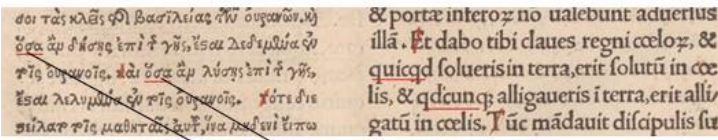 σοι τὰς κλεῖς τῆς βασιλείας τῶν οὐρανῶν, καὶ
ὅσα ἂν δήσῃς ἐπὶ τῆς γῆς, ἔσται δεδεμένα ἐν
τοῖς οὐρανοῖς. καὶ ὅσα ἂν λύσῃς ἐπὶ τῆς γῆς,
ἔσται λελυμένα ἐν τοῖς οὐρανοῖς. τότε διε
στείλατο τοῖς μαθηταῖς αὐτοῦ, ἵνα μηδενὶ εἴπω
& portæ inferoꝝ nō ualebunt aduersus
illā. Et dabo tibi claues regni cœloꝝ, &
quicqd solueris in terra, erit solutū in cœ
lis, & qdcunqꝫ alligaueris ī terra, erit alli/
gatū in cœlis. Tūc mādauit discipulis su